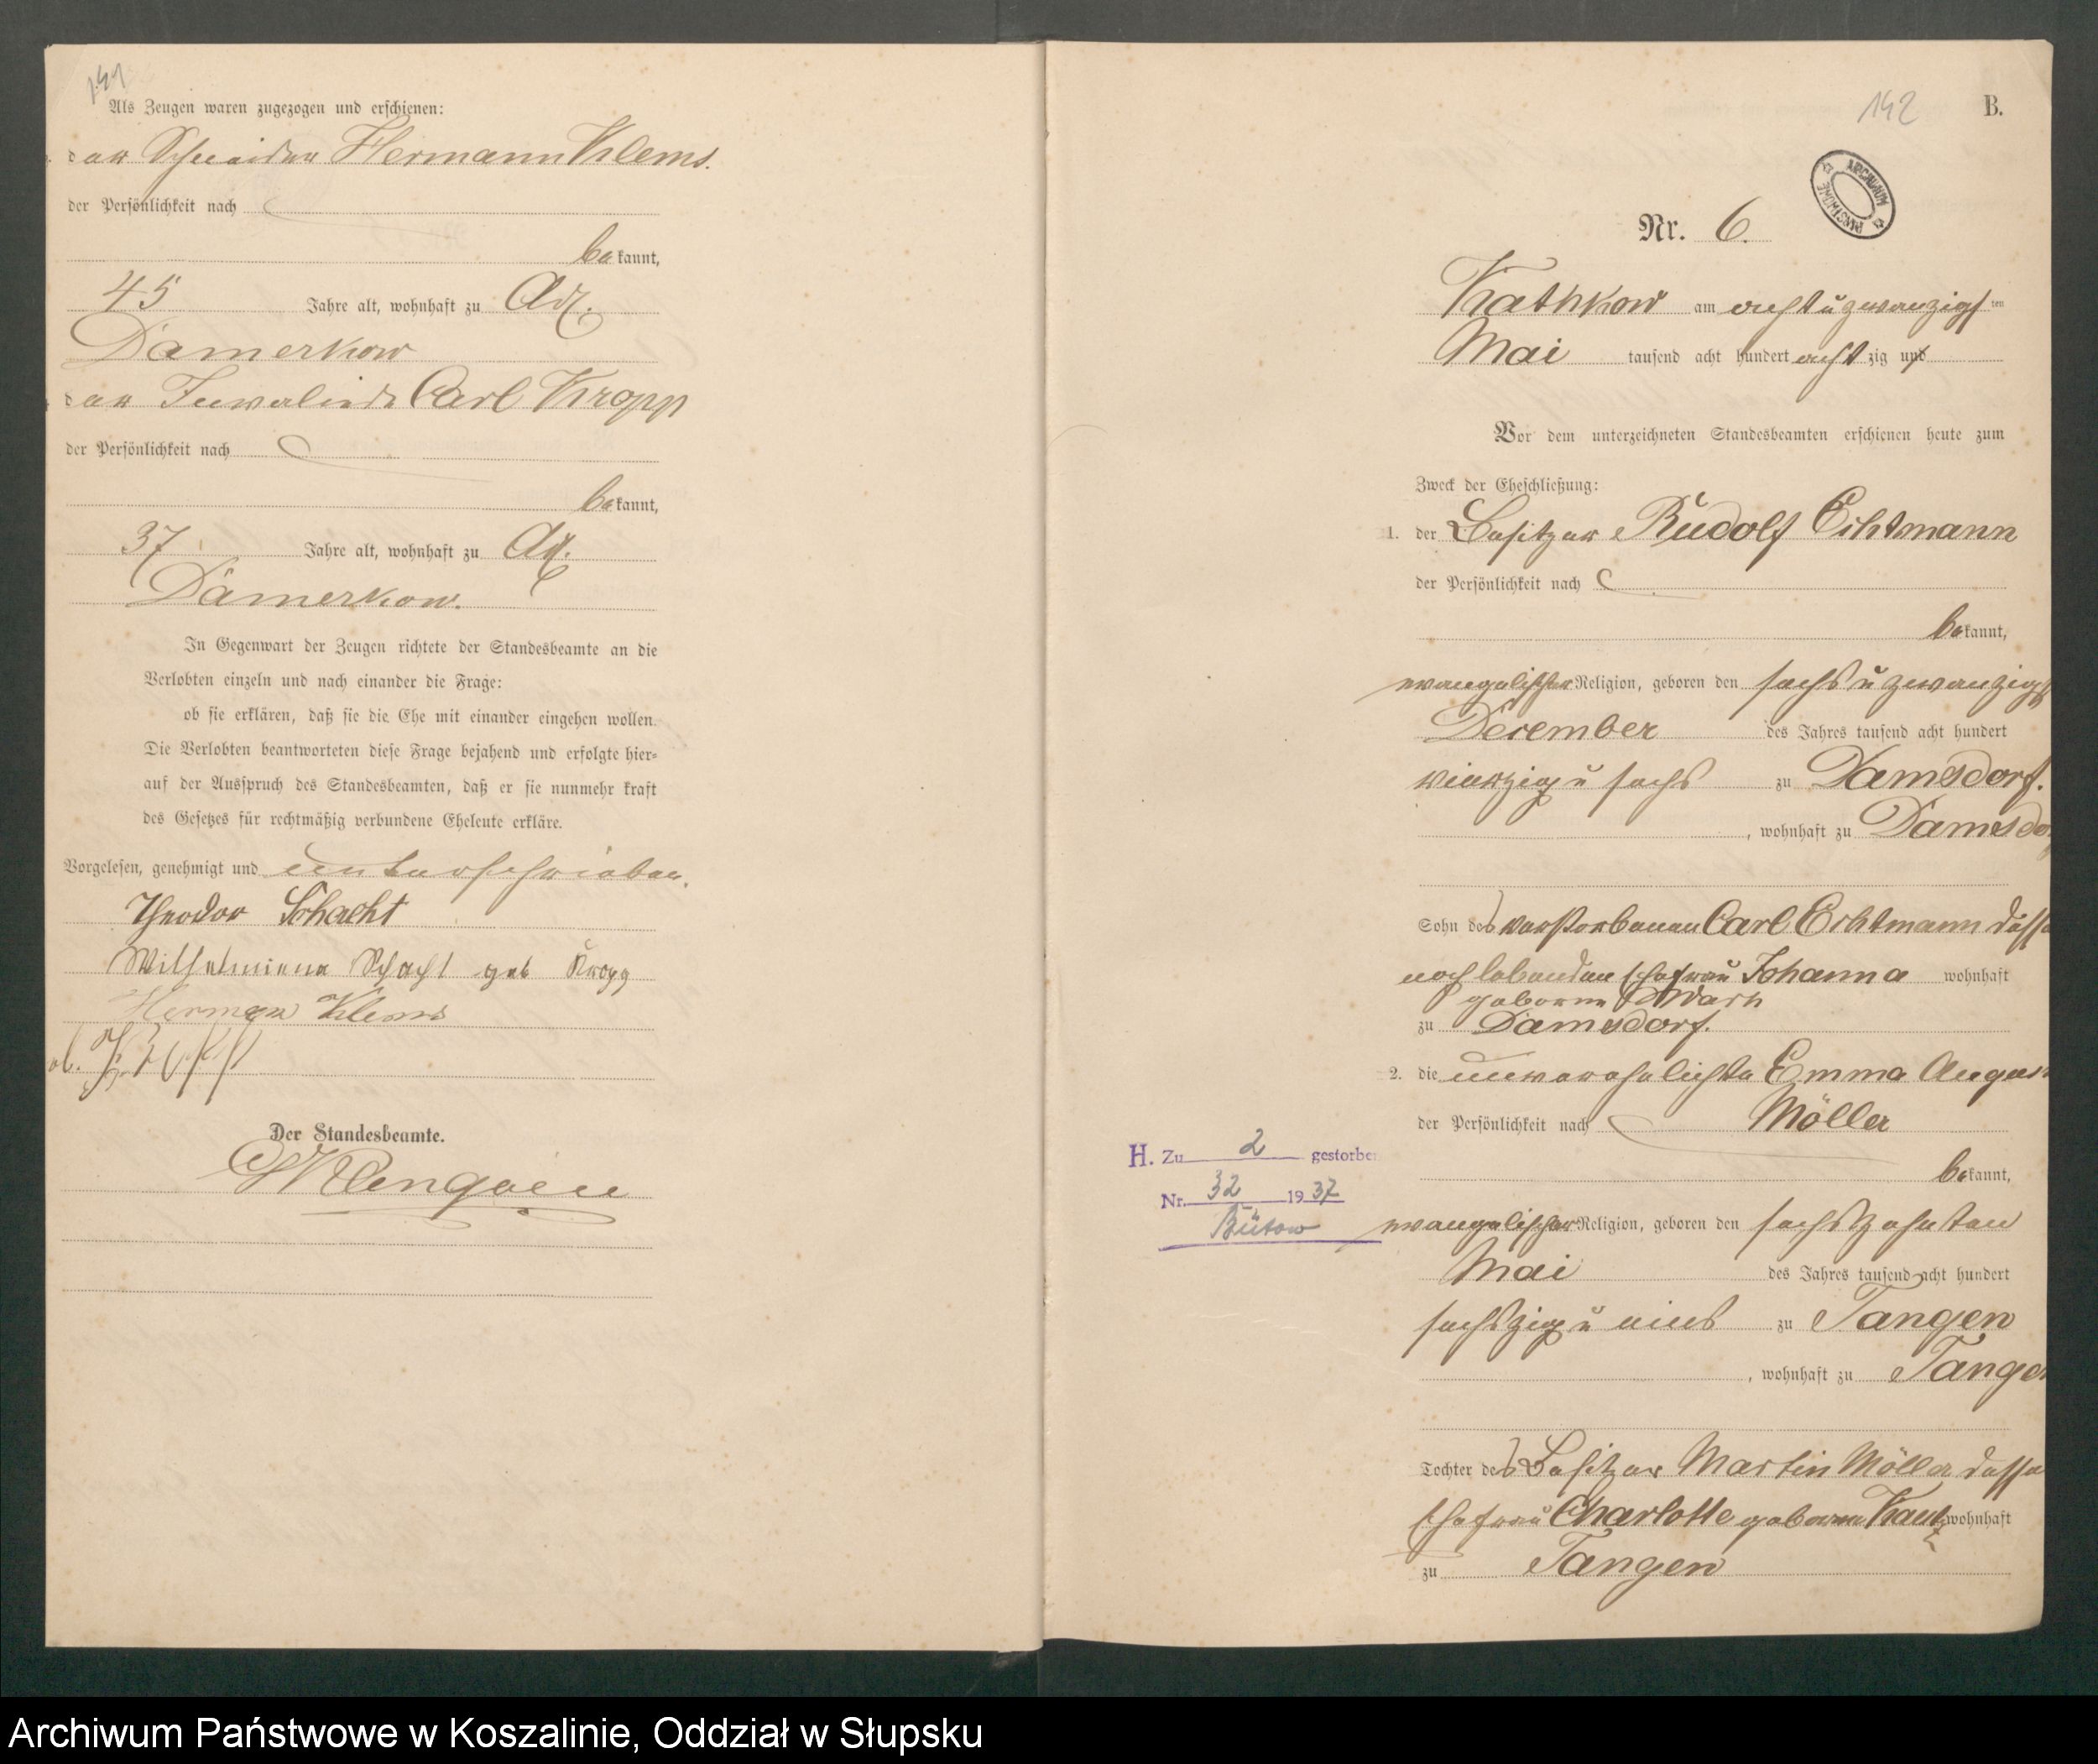 141
Als Zeugen waren zugezogen und erschienen:
der Schneider Hermann Klems.
der Persönlichkeit nach
bekannt,
45 Jahre alt, wohnhaft zu Adl.
Damerkow
der Invalide Carl Kropp
der Persönlichkeit nach
bekannt,
37 Jahre alt, wohnhaft zu Adl.
Damerkow.
In Gegenwart der Zeugen richtete der Standesbeamte an die
Verlobten einzeln und nach einander die Frage:
ob sie erklären, daß sie die Ehe mit einander eingehen wollen.
Die Verlobten beantworteten diese Frage bejahend und erfolgte hier-
auf der Ausspruch des Standesbeamten, daß er sie nunmehr kraft
des Gesetzes für rechtmäßig verbundene Eheleute erkläre.
Vorgelesen, genehmigt und unterschrieben.
Theodor Schacht
Wilhelmiene Schacht geb Kropp
Herman Klems
Kropp
Der Standesbeamte.
142
B.
ARCHIWUM PAŃSTWOWE
Nr. 6.
Kathkow am acht u zwanzigsten
Mai tausend acht hundert achtzig und
Vor dem unterzeichneten Standesbeamten erschienen heute zum
Zweck der Eheschließung:
1. der Besitzer Rudolf Echtmann
der Persönlichkeit nach
bekannt,
evangelischer Religion, geboren den sechs u zwanzigst
December des Jahres tausend acht hundert
vierzig u sechs zu Damsdorf.
, wohnhaft zu Damsdo
Sohn des verstorbenen Carl Echtmann desse
noch lebenden Ehefrau Johanna wohnhaft
geborne
zu Damsdorf.
2. die unverehelichte Emma Augus
der Persönlichkeit nach Möller
bekannt,
H. Zu 2 gestorben
Nr. 32 1937
Bütow
evangelischer Religion, geboren den sechszehnten
Mai des Jahres tausend acht hundert
sechszig u eins zu Tangen
, wohnhaft zu Tangen
Tochter des Besitzer Martin Möller desse
Ehefrau Charlotte geborne Kautz wohnhaft
zu Tangen
Archiwum Państwowe w Koszalinie, Oddział w Słupsku